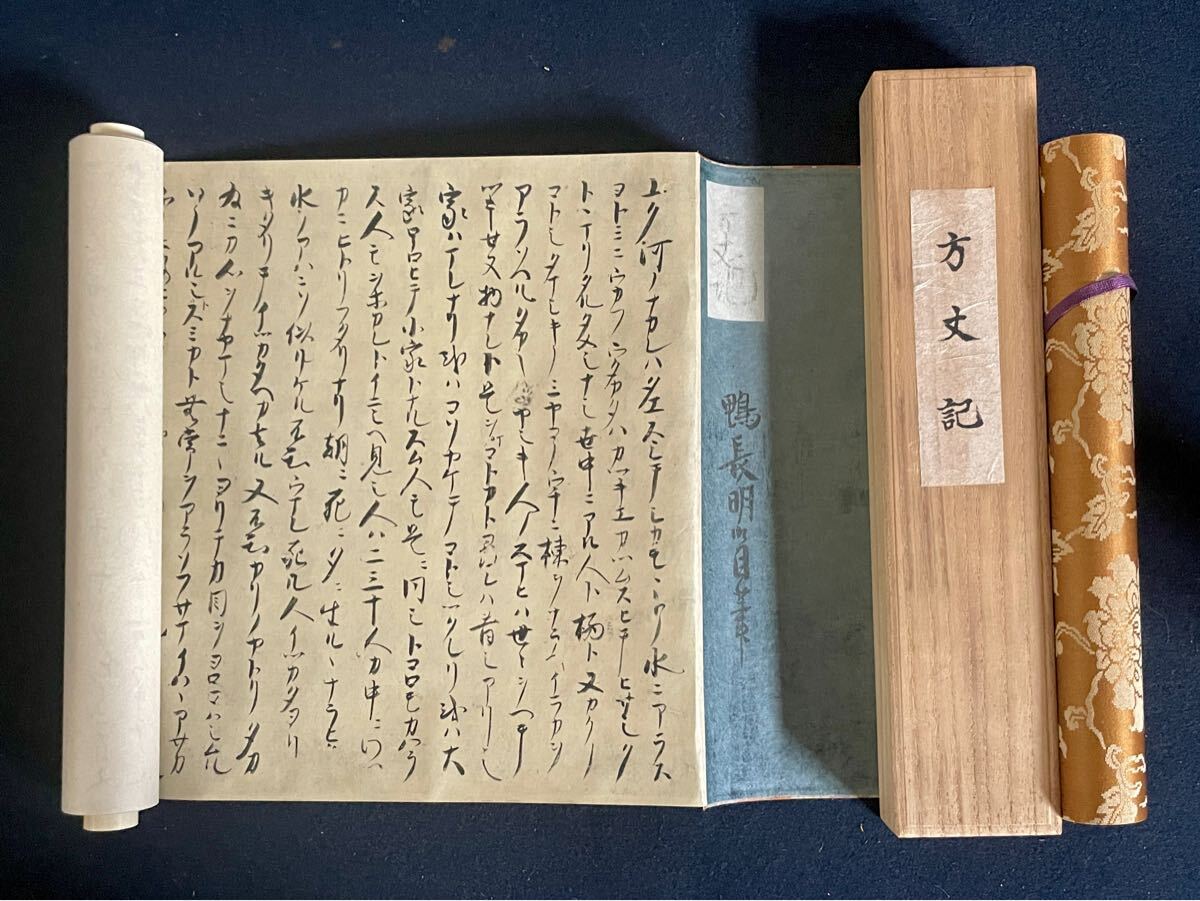 方丈記
鴨長明自筆
ユク河ノナカレハタエスシテシカモヽトノ水ニアラス
ヨトミニウカフウタカタハカツキエカツムスヒテヒサシク
トヽマリタルタメシナシ世中ニアル人ト栖ト又カクノ
コトシタマシキノミヤコノウチニ棟ヲナラヘイラカヲ
アラソヘルタカキイヤシキ人ノスマヒハ世々ヲヘテ
ツキセヌ物ナレト是ヲマコトカト尋レハ昔シアリシ
家ハマレナリ或ハコソヤケテコトシツクレリ或ハ大
家ホロヒテ小家トナルスム人モ是ニ同シトコロモカハラ
ス人モヲホカレトイニシヘ見シ人ハ二三十人カ中ニワツ
カニヒトリフタリナリ朝ニ死ニ夕ニ生ルヽナラヒ
水ノアハニソ似リケル不知ウマレ死ル人イツカタヨリ
キタリテイツカタヘカ去ル又不知カリノヤトリタカ
為ニカ心ヲナヤマシナニヽヨリテカ目ヲヨロコハシムル
ソノアルシトスミカト無常ヲアラソフサマイハヽアサカ